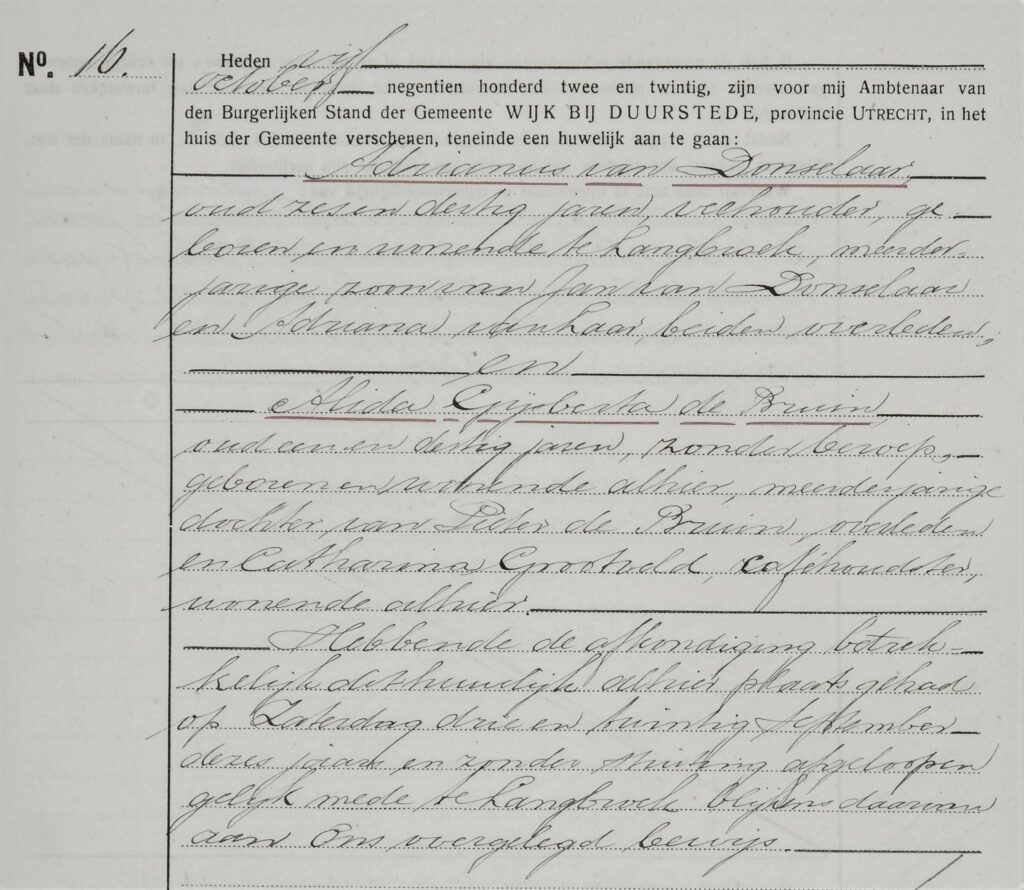 Nº. 16.
Heden vijf
october negentien honderd twee en twintig, zijn voor mij Ambtenaar van
den Burgerlijken Stand der Gemeente WIJK BIJ DUURSTEDE, provincie UTRECHT, in het
huis der Gemeente verschenen, teneinde een huwelijk aan te gaan:
Adrianus van Donselaar,
oud zes en dertig jaren, veehouder, ge-
boren en wonende te Langbroek, meerder-
jarige zoon van Jan van Donselaar
en Adriana van Kaar, beiden overleden,
en
Alida Gijsberta de Bruin,
oud een en dertig jaren, zonder beroep,
geboren en wonende alhier, meerderjarige
dochter van Pieter de Bruin, overleden
en Catharina Grootveld, caféhoudster,
wonende alhier.
Hebbende de afkondiging betrek-
kelijk dit huwelijk alhier plaats gehad
op Zaterdag drie en twintig September
dezes jaars en zonder stuiting afgeloopen
gelijk mede te Langbroek blijkens daarvan
aan Ons overgelegd bewijs.